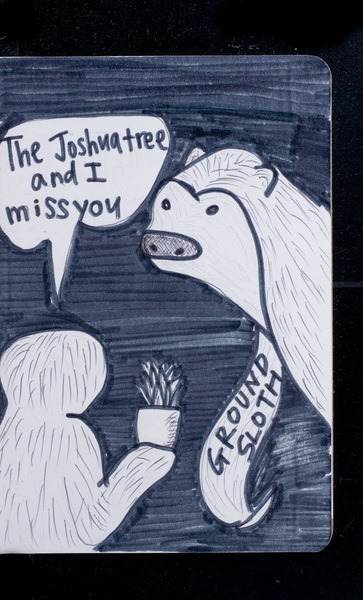 The Joshuatree
and I
miss you
GROUND
SLOTH